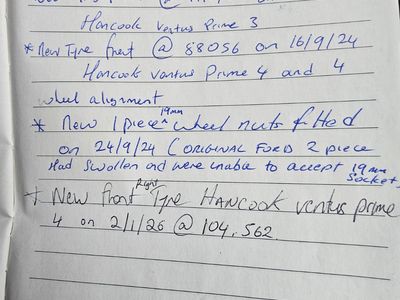 Hancook Ventus Prime 3
* New Tyre front @ 88056 on 16/9/24
Hancook Ventus Prime 4 and 4
wheel alignment
* New 1 piece 19mm wheel nuts fitted
on 24/9/24 (ORIGINAL FORD 2 piece
Had swollen and were unable to accept 19mm
socket)
* New front Right Tyre HANCOOK Ventus prime
4 on 2/1/26 @ 104,562